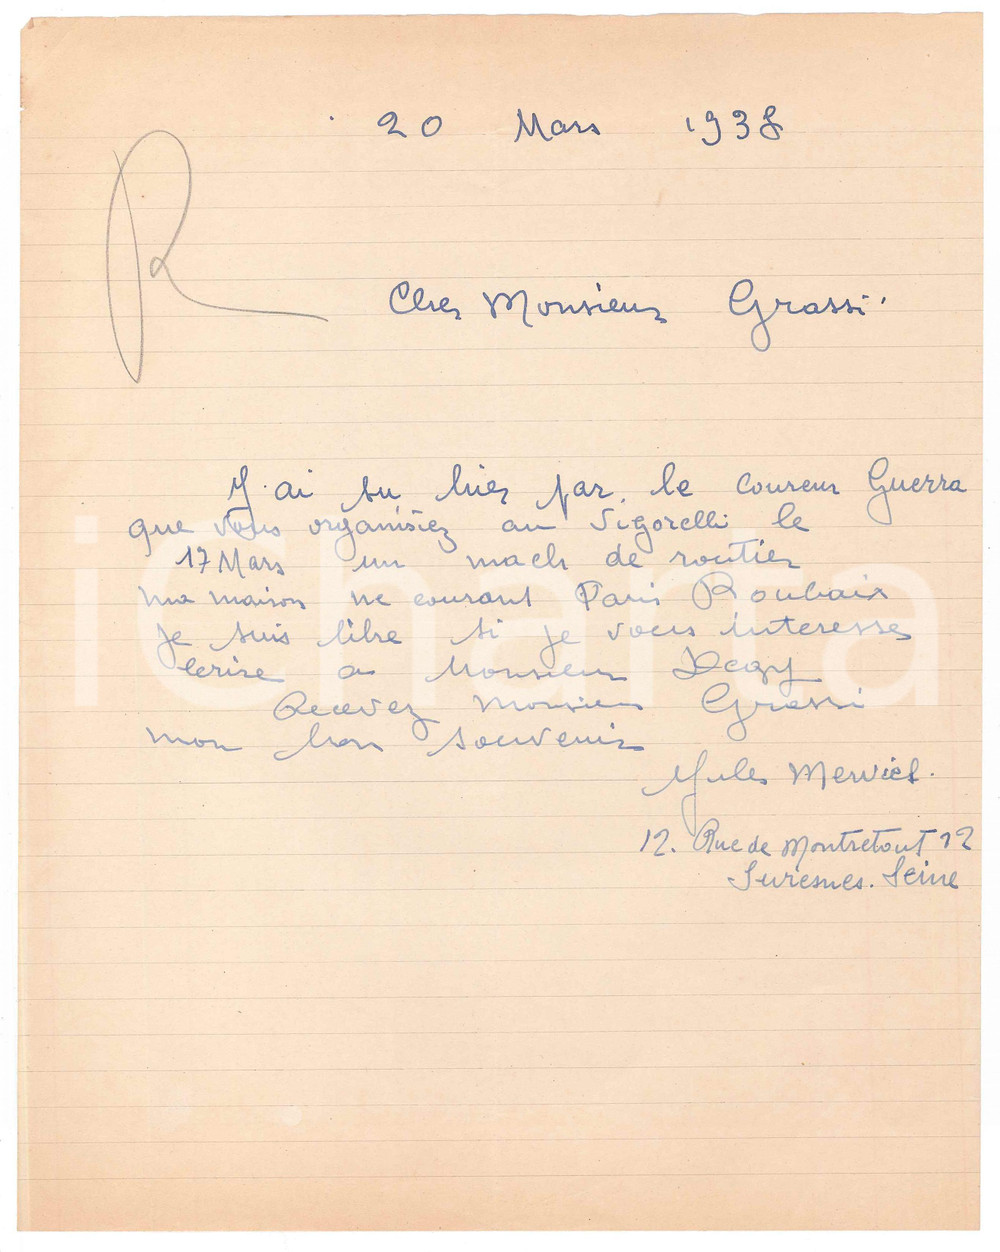 20 Mars 1938
R
Cher Monsieur Grassi
J'ai su hier par le coureur Guerra
que vous organisiez au Vigorelli le
17 Mars un mach de routier
ma maison ne courant Paris Roubaix
je suis libre si je vous interesses
ecrire a Monsieur Degy
Recevez Monsieur Grassi
mon bon souvenir
Jules Merviel.
12. Rue de Montretout 12
Suresnes. Seine
iCharta